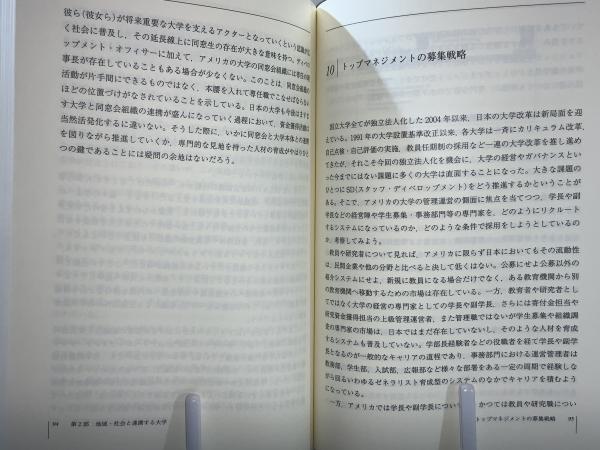 彼ら(彼女ら)が将来重要な大学を支えるアクターとなっていくという認識が広
く社会に普及し、その延長線上に同窓生の存在が大きな意味を持つ。ディベロ
ップメント・オフィサーに加えて、アメリカの大学の同窓会組織には専任の理
事長が存在していることもある場合が少なくない。このことは、同窓会組織の
活動が片手間にできるものではなく、本腰を入れて専任職でこなせばならない
ほどの位置づけがなされていることを示している。日本の大学も今後はますま
す大学と同窓会組織の連携が盛んになっていく過程において、資金獲得活動は
当然活発化するに違いない。そうした際に、いかに同窓会と大学本体との連携
を図りながら推進していくか、専門的な見地を持った人材の育成がやはりひと
つの鍵であることには疑問の余地はないだろう。
94 第2部 地域・社会と連携する大学
10 トップマネジメントの募集戦略
国立大学全てが独立法人化した2004年以来、日本の大学改革は新局面を迎
えている。1991年の大学設置基準改正以来、各大学は一斉にカリキュラム改革、
自己点検・自己評価の実施、教員任期制の採用など一連の大学改革を推し進め
てきたが、それこそ今回の独立法人化を機会に、大学の経営やガバナンスとい
った今までにはない課題に多くの大学は直面することになった。大きな課題の
ひとつにSD(スタッフ・ディベロップメント)をどう推進するかということが
ある。そこで、アメリカの大学の管理運営の側面に焦点を当てつつ、学長や副
学長などの経営陣や学生募集・事務部門等の専門家を、どのようにリクルート
するシステムになっているのか、どのような条件で採用をしようとしているの
か、考察してみよう。
教員や研究者について見れば、アメリカに限らず日本においてもその流動性
は、民間企業や他の分野と比べると決して低くはない。公募にせよ公募以外の
紹介システムにせよ、新規に教員になる場合だけでなく、ある教育機関から別
の教育機関へ移動するための市場は存在している。一方、教育者や研究者とし
てではなく大学の経営の専門家としての学長や副学長、さらには寄付金担当や
研究資金獲得担当の上級管理運営者、また管理職ではないが学生募集や組織調
査の専門家の市場は、日本ではまだ存在していないし、そのような人材を育成
するシステムも普及していない。学部長経験者などの役職者を経て学長や副学
長となるのが一般的なキャリアの道程であり、事務部門における運営管理者は
教務部、学生部、入試部、広報部など様々な部署をある一定の周期で経験しな
がら回るいわゆるゼネラリスト育成型のシステムのなかでキャリアを積むよう
になっている。
一方、アメリカでは学長や副学長について かつては教員や研究職につい
トップマネジメントの募集戦略 95